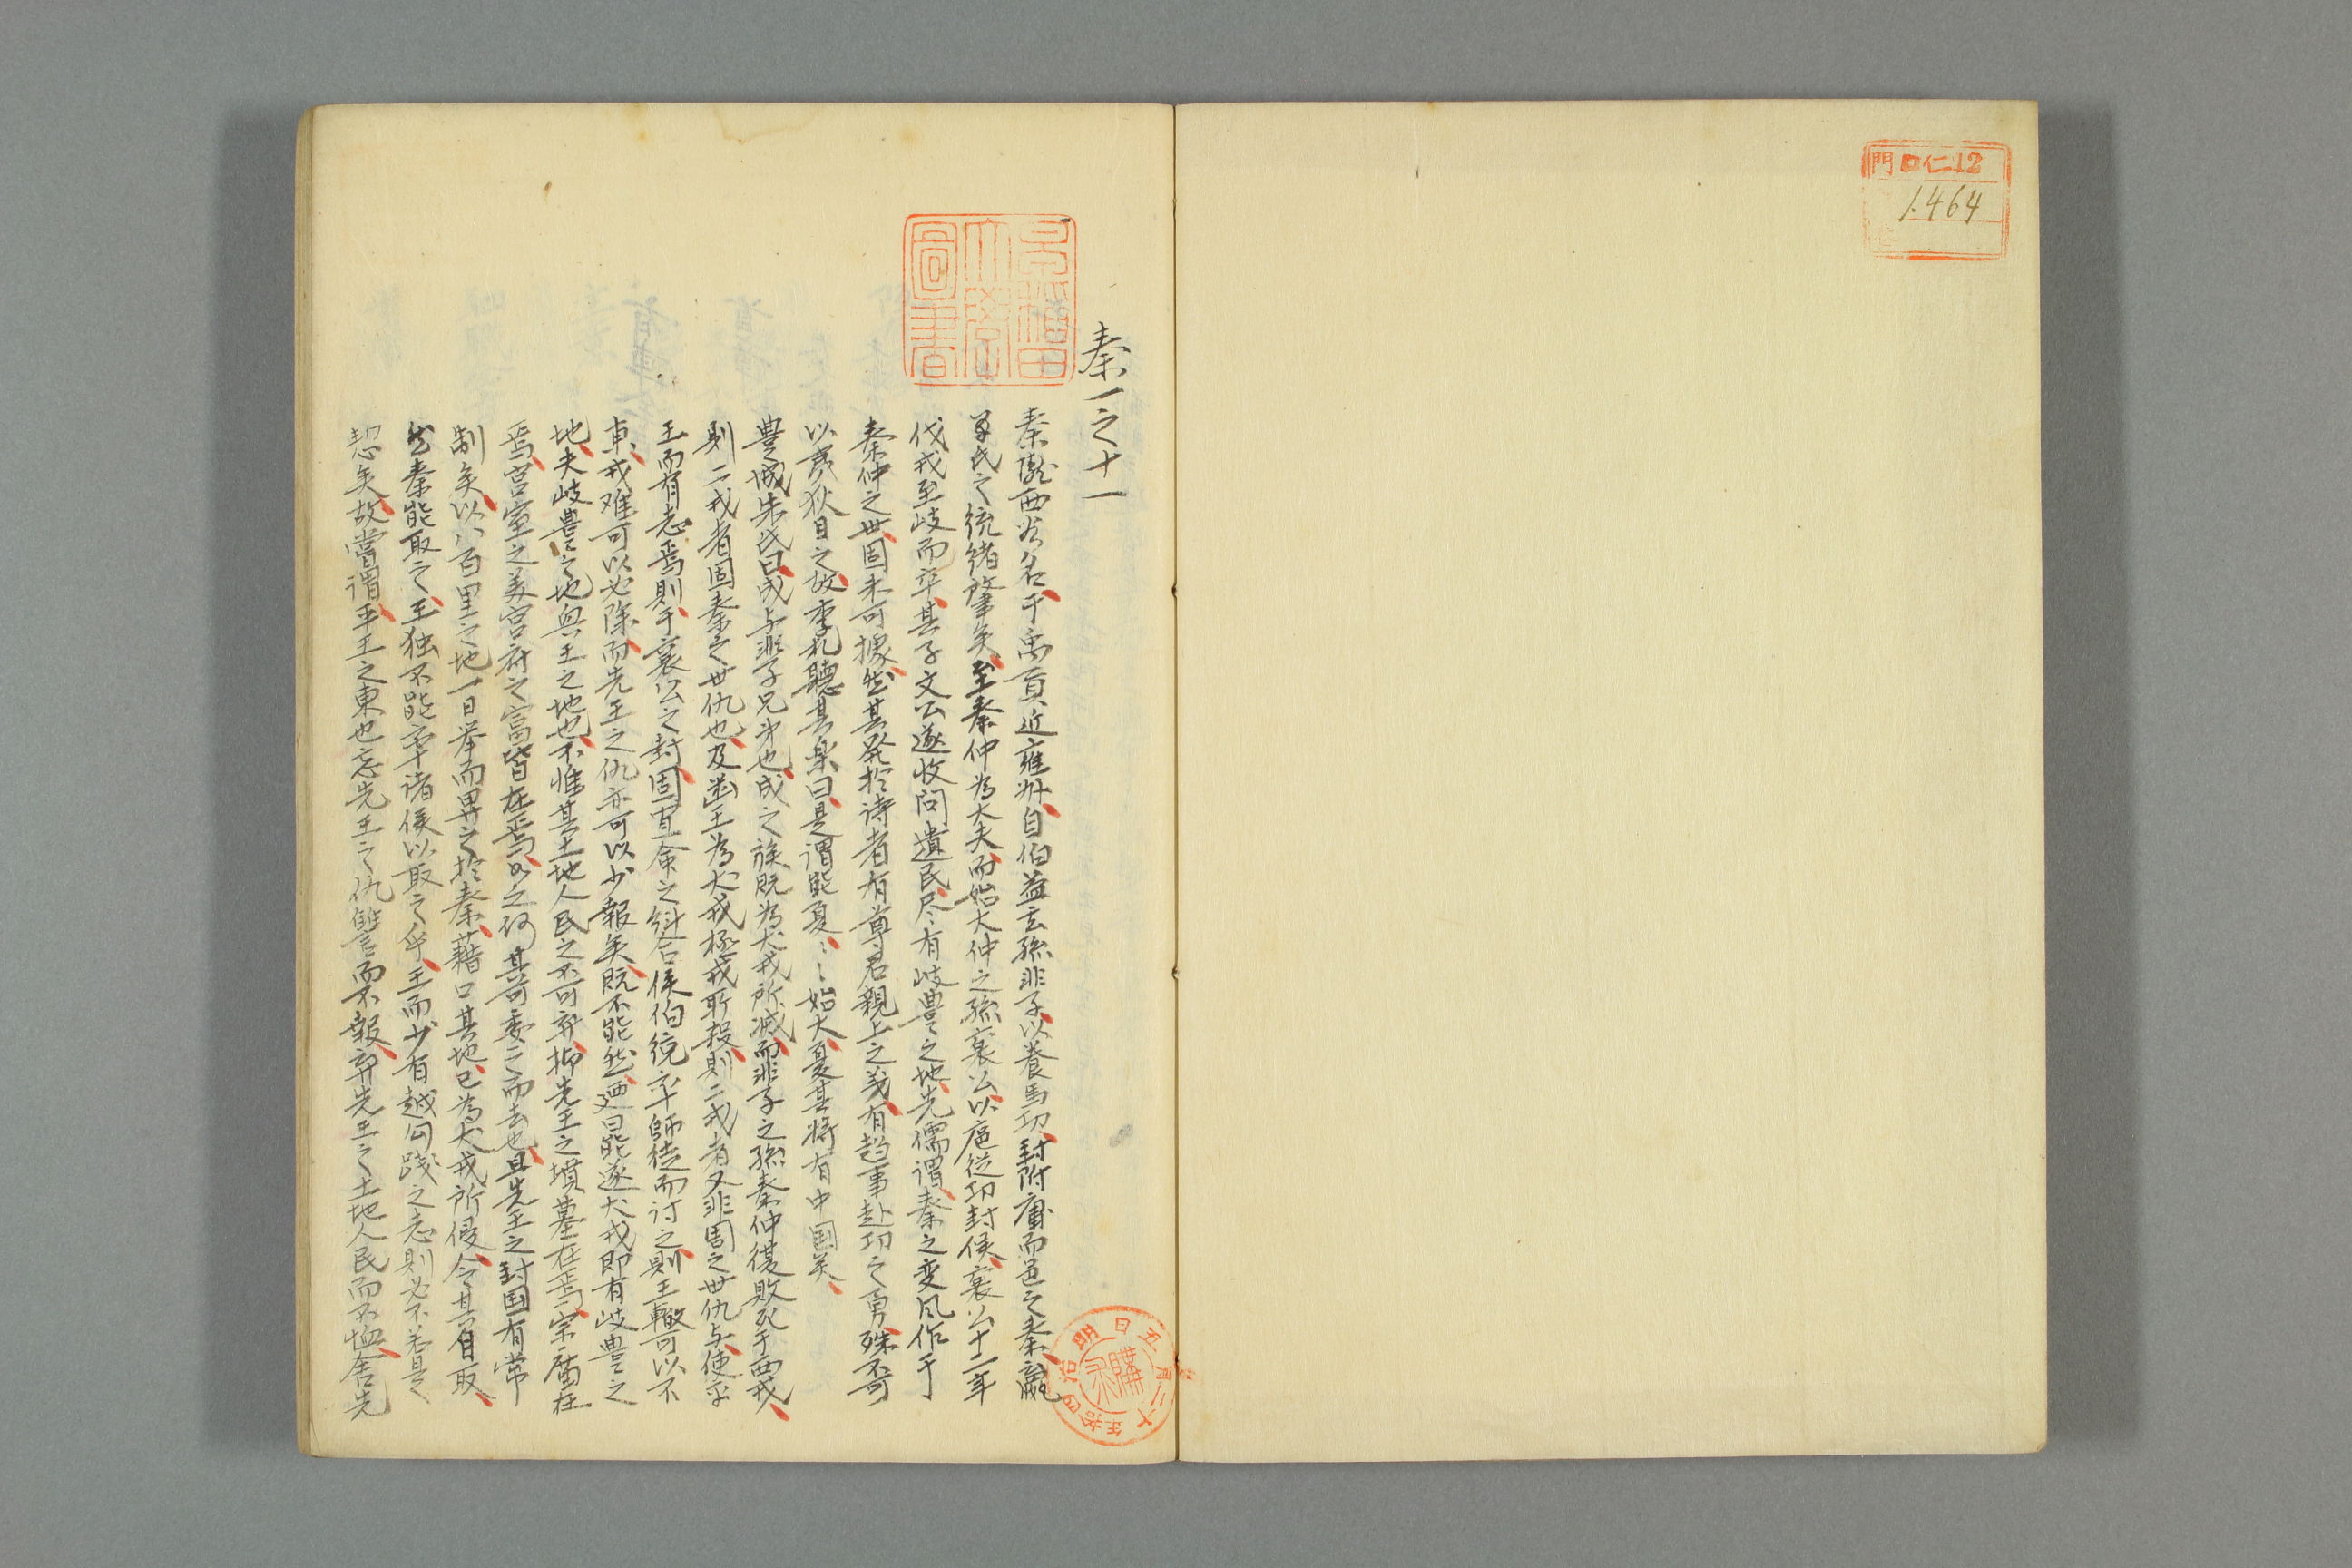 門 ロ 仁12
1.464
早稲田大學圖書
秦一之十一
秦隴西谷名于禹貢近雍州自伯益玄孫非子以養馬功封附庸而邑之秦嬴
子氏之統緒肇矣至秦仲為大夫而始大仲之孫襄公以扈從功封侯襄公十二年
伐戎至岐而卒其子文公遂收問遺民尽有岐豊之地先儒謂秦之変風作于
秦仲之世固未可據然其発於詩者有尊君親上之義有趋事赴功之勇殊不可
以夷狄目之故季札聽其楽曰是謂能夏〻〻始大夏其将有中国矣
豊城朱氏曰成与非子兄弟也成之族既為犬戎所滅而非子之孫秦仲復敗死于西戎
則二戎者固秦之世仇也及幽王為犬戎極戎所殺則二戎者又非周之世仇与使平
王而有志焉則于襄公之封固宜命之糾合侯伯統率師徒而討之則王轍可以不
東戎难可以必除而先王之仇亦可以少報矣既不能然廼曰能逐犬戎即有岐豊之
地夫岐豊之地與王之地也不惟其土地人民之不可弃抑先王之墳墓在焉宗廟在
焉宮室之美官府之富皆在焉如之何其可委之而去也且先王之封国有常
制矣以八百里之地一日挙而畀之於秦藉口其地已為犬戎所侵今其自取
然秦能取之王独不能命諸侯以取之乎王而少有越勾踐之志則必不若是
恝矣故嘗謂平王之東也忘先王之仇讐而不報弃先王之土地人民而不恤舍先
明治四拾年 五月二十日
購求